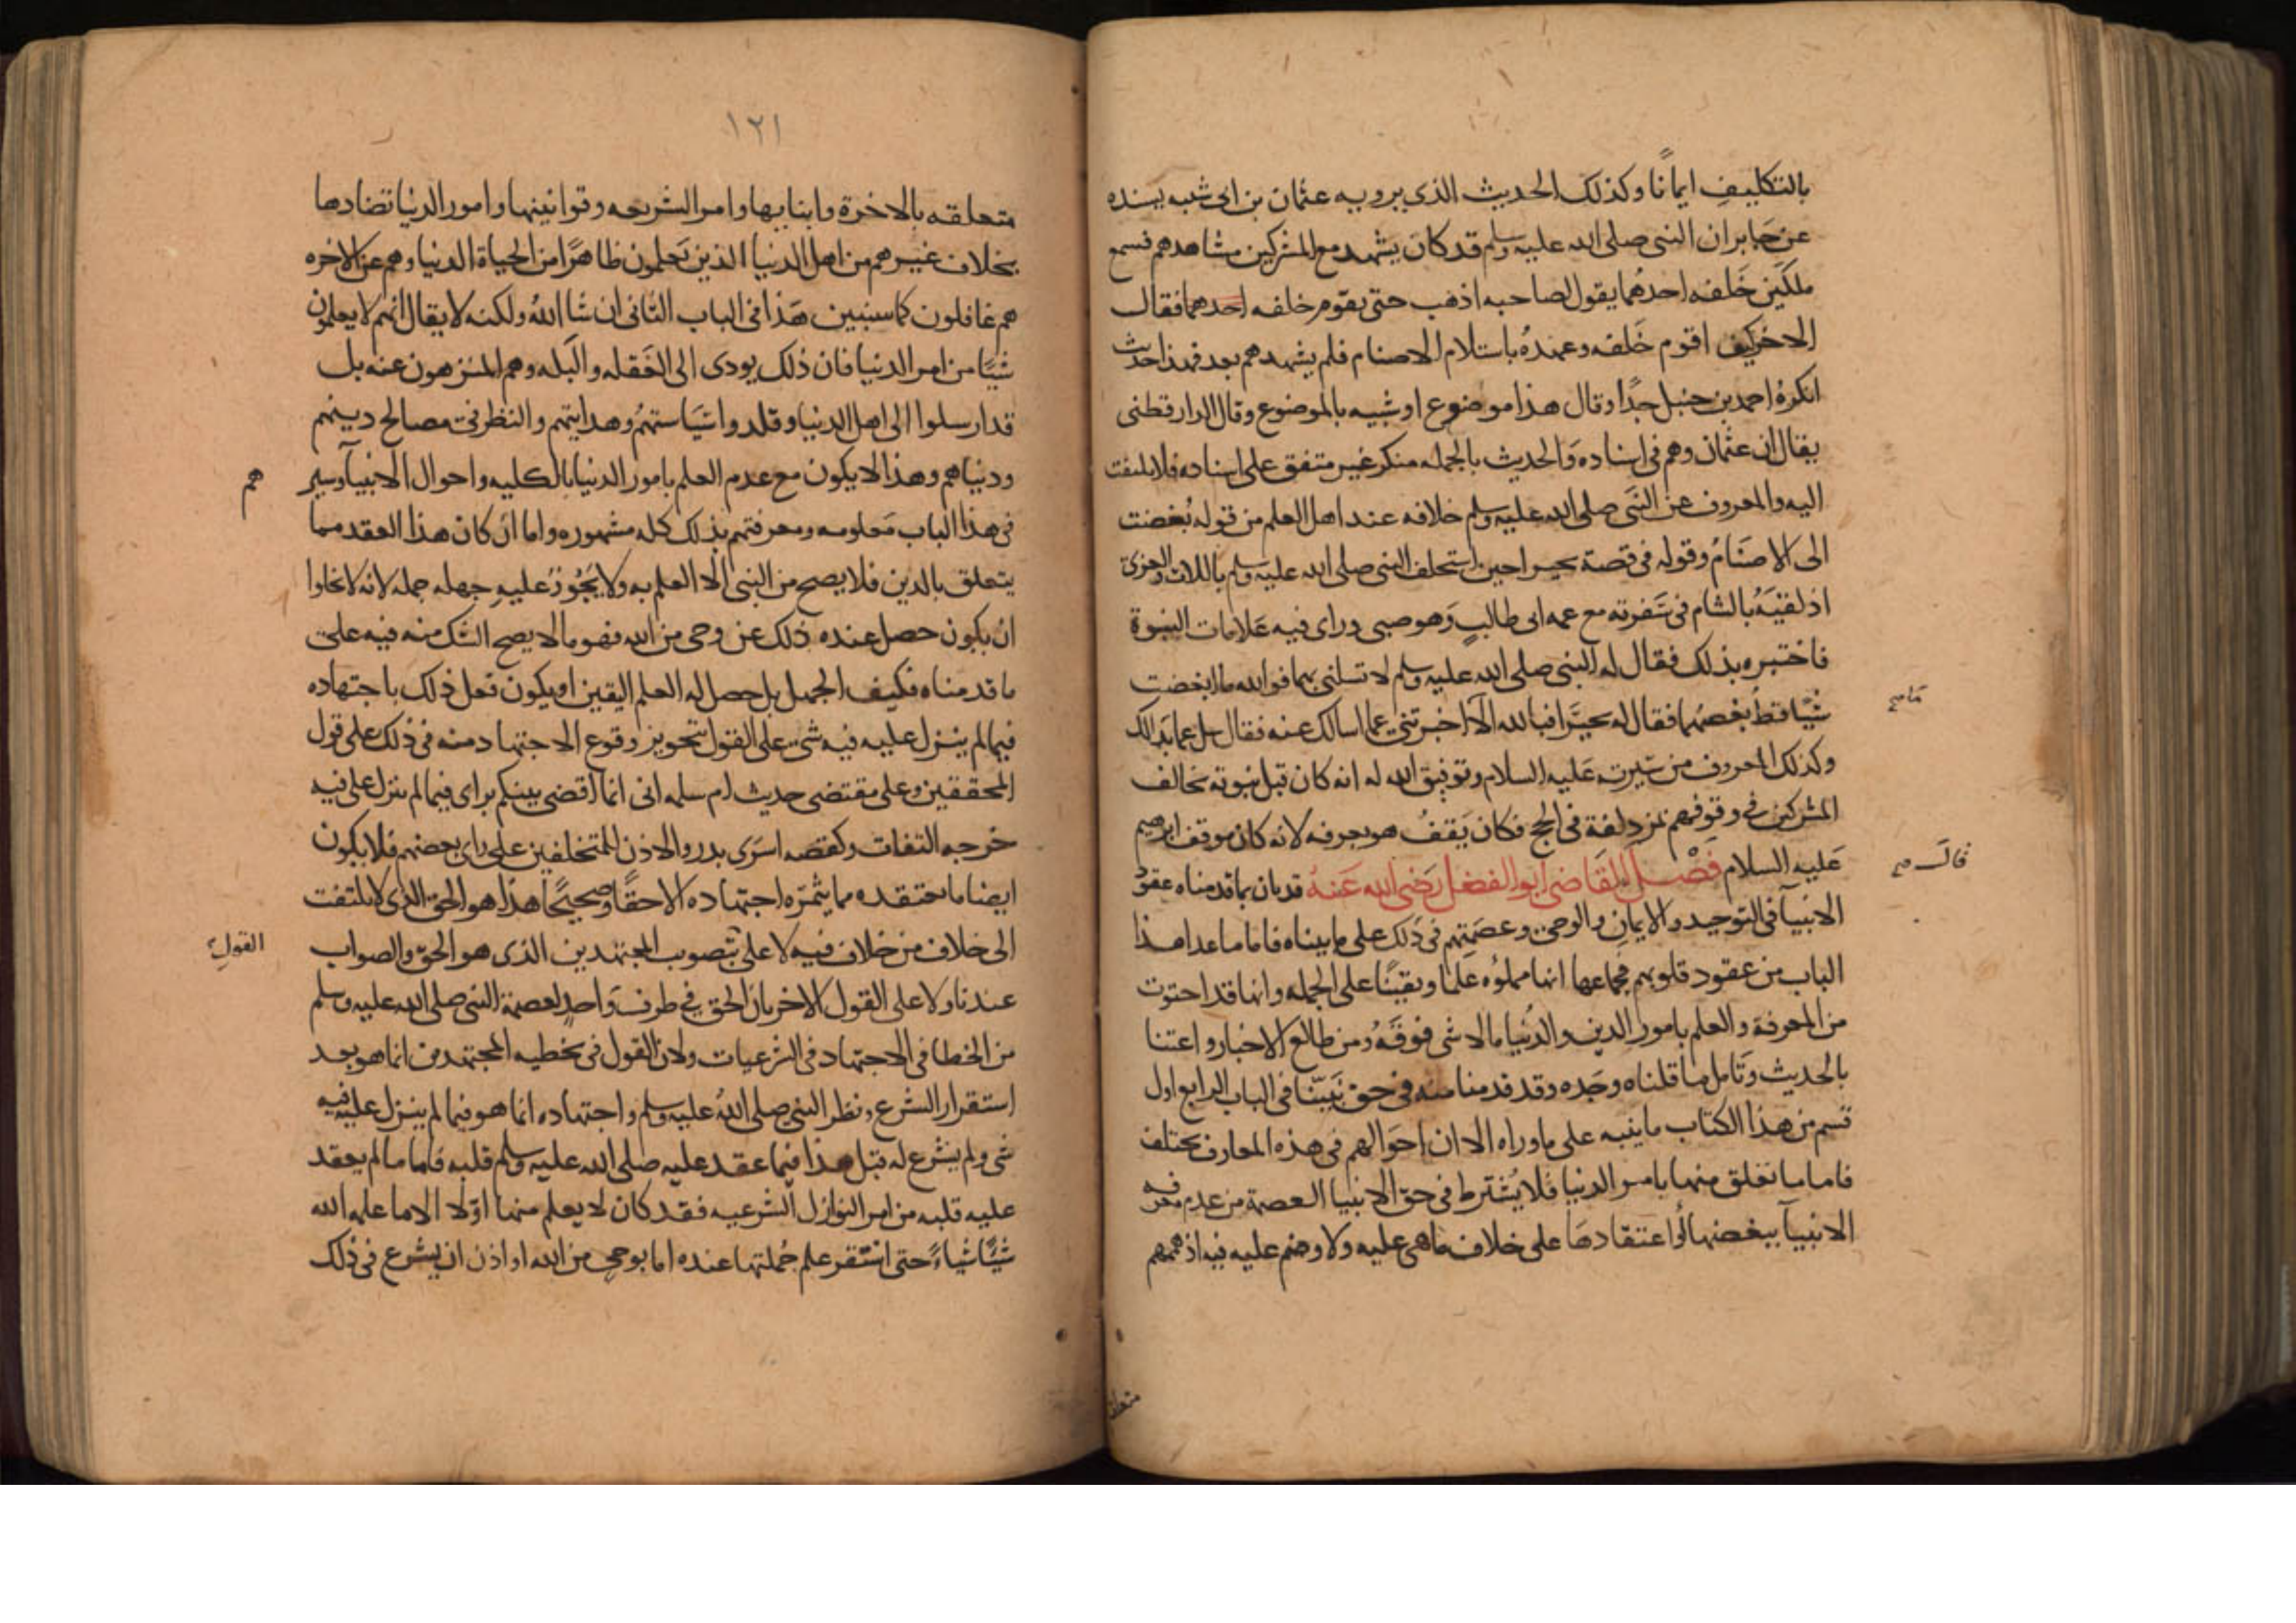 بالتكليف ايمانا وكذلك الحديث الذى يرويه عثمان بن ابى شيبه بسنده
عن جابر ان النبى صلى الله عليه وسلم قد كان يشهد مع المشركين مشاهدهم فسمع
ملكين خلفه احدهما يقول لصاحبه اذهب حتى تقوم خلفه احدهما فقال
الاخر كيف اقوم خلفه وعهده باستلام الاصنام فلم يشهدهم بعد فهذا حديث
انكره احمد بن حنبل جدا وقال هذا موضوع او شبيه بالموضوع وقال الدارقطنى
يقال ان عثمان وهم فى اسناده والحديث بالجمله منكر غير متفق على اسناده فلا يلتفت
اليه والمعروف عن النبى صلى الله عليه وسلم خلافه عند اهل العلم من قوله بغضت
الى الاصنام وقوله فى قصة بحيرا حين استحلف النبى صلى الله عليه وسلم باللات والعزى
اذ لقيه بالشام فى سفرته مع عمه ابى طالب وهو صبى وراى فيه علامات النبوة
فاختبره بذلك فقال له النبى صلى الله عليه وسلم لا تسلنى بهما فوالله ما ابغضت
شيا قط بغضهما فقال له بحيرا فبالله الا اخبرتنى عما اسالك عنه فقال سل عما بدالك
وكذلك المعروف من سيرته عليه السلام وتوفيق الله له انه كان قبل نبوته يخالف
المشركين فى وقوفهم بمزدلفة فى الحج فكان يقف هو بعرفه لانه كان موقف ابرهيم
عليه السلام فصل القاضى ابو الفضل رضى الله عنه قد بان بما قدمناه عقود
قال صح
الانبيآ فى التوحيد والايمان والوحى وعصمتهم فى ذلك على ما بيناه فاما ما عدا هذا
الباب من عقود قلوبهم فجماعها انها مملوه علما ويقينا على الجمله وانها قد احتوت
من المعرفة والعلم بامور الدين والدنيا مالا شى فوقه ومن طالع الاخبار واعتنا
بالحديث وتامل ما قلناه وجده وقد قدمنا منه فى حق نبينا فى الباب الرابع اول
قسم من هذا الكتاب ما ينبه على ماوراه الا ان احوالهم فى هذه المعارف تختلف
فاما ما تعلق منها بامر الدنيا فلا يشترط فى حق الانبيا العصمة من عدم معرفه
الانبيآ ببعضها او اعتقادها على خلاف ماهى عليه ولا وصم عليهم فيه اذ هممهم
١٢١
متعلقه بالاخرة وانبايها وامر الشريعه وقوانينها وامور الدنيا تضادها
بخلاف غيرهم من اهل الدنيا الذين يعلمون ظاهرا من الحياة الدنيا وهم عن الاخره
هم غافلون كما سنبين هذا فى الباب الثانى ان شا الله ولكنه لا يقال انهم لا يعلمون
شيا من امر الدنيا فان ذلك يودى الى الغفله والبله وهم المنزهون عنه بل
قد ارسلوا الى اهل الدنيا وقلدوا سياستهم وهدايتهم والنظر فى مصالح دينهم
ودنياهم وهذا لا يكون مع عدم العلم بامور الدنيا بالكليه واحوال الانبيآ وسير
هم
فى هذا الباب معلومه ومعرفتهم بذلك كله مشهوره واما ان كان هذا العقد مما
يتعلق بالدين فلا يصح من النبى الا العلم به ولا يجوز عليه جهله جمله لانه لا يخلوا
ان يكون حصل عنده ذلك عن وحى من الله فهو مالا يصح الشك منه فيه على
ما قدمناه فكيف الجهل بل حصل له العلم اليقين او يكون فعل ذلك باجتهاده
فيما لم ينزل عليه فيه شى على القول بتجويز وقوع الاجتهاد منه فى ذلك على قول
المحققين وعلى مقتضى حديث ام سلمه انى انما اقضى بينكم براى فيما لم ينزل على فيه
خرجه الثقات وكقصه اسرى بدر والاذن للمتخلفين على راى بعضهم فلا يكون
ايضا ما يعتقده مما يثمره اجتهاده الا حقا وصحيحا هذا هو الحق الذى لا يلتفت
الى خلاف من خالف فيه لا على بتصويب المجتهدين الذى هو الحق والصواب
القول
عندنا ولا على القول الاخر بان الحق فى طرف واحد لعصمة النبى صلى الله عليه وسلم
من الخطا فى الاجتهاد فى الشرعيات ولان القول فى تخطيه المجتهدين انما هو بعد
استقرار الشرع ونظر النبى صلى الله عليه وسلم واجتهاده انما هو فيما لم ينزل عليه فيه
شى ولم يشرع له قبل هذا فيما عقد عليه صلى الله عليه وسلم قلبه فاما ما لم يعقد
عليه قلبه من امر النوازل الشرعيه فقد كان لا يعلم منها اولا الا ما علمه الله
شيا شياء حتى استقر علم جملتها عنده اما بوحى من الله او اذن ان يشرع فى ذلك